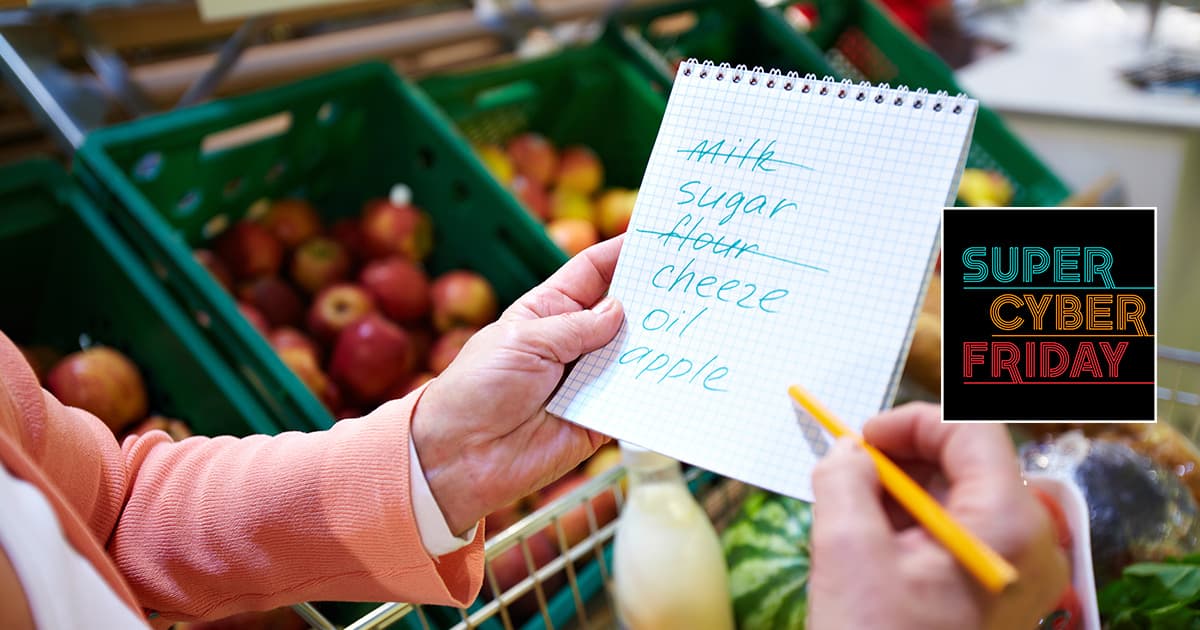 Milk
sugar
flour
cheeze
oil
apple
SUPER
CYBER
FRIDAY